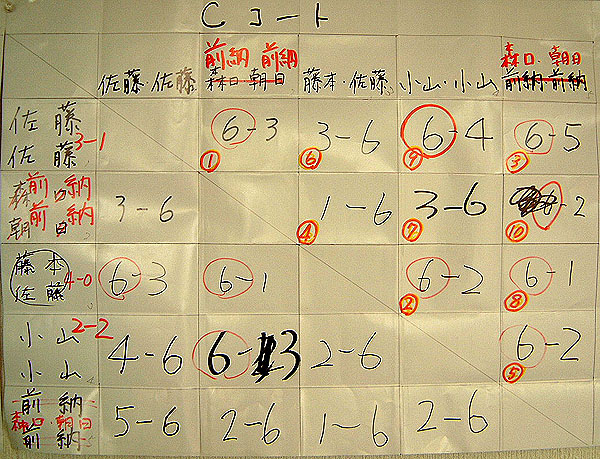 Cコート
佐藤・佐藤 前納 前納 森口 朝日 藤本・佐藤 小山・小山 森口・朝日 前納・前納
佐藤 佐藤 3-1 6-3 ① 3-6 ⑥ 6-4 ⑨ 6-5 ③
森口 朝日 前納 前納 3-6 1-6 ④ 3-6 ⑦ 6-2 ⑩
藤本 佐藤 4-0 6-3 6-1 6-2 ② 6-1 ⑧
小山 小山 2-2 4-6 6-3 2-6 6-2 ⑤
前納 前納 森口・朝日 5-6 2-6 1-6 2-6